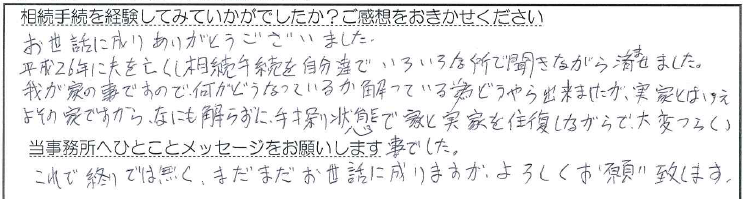 相続手続を経験してみていかがでしたか？ご感想をおきかせください
お世話に成りありがとうございました。
平成26年に夫を亡くし相続手続を自分達でいろいろな所で聞きながら済ませました。
我が家の事ですので、何がどうなっているか解っている為どうやら出来ましたが、実家とはいえ
よその家ですから、なにも解らずに、手探り状態で家と実家を往復しながらで、大変つらい
当事務所へひとことメッセージをお願いします事でした。
これで終りでは無く、まだまだお世話に成りますが、よろしくお願い致します。